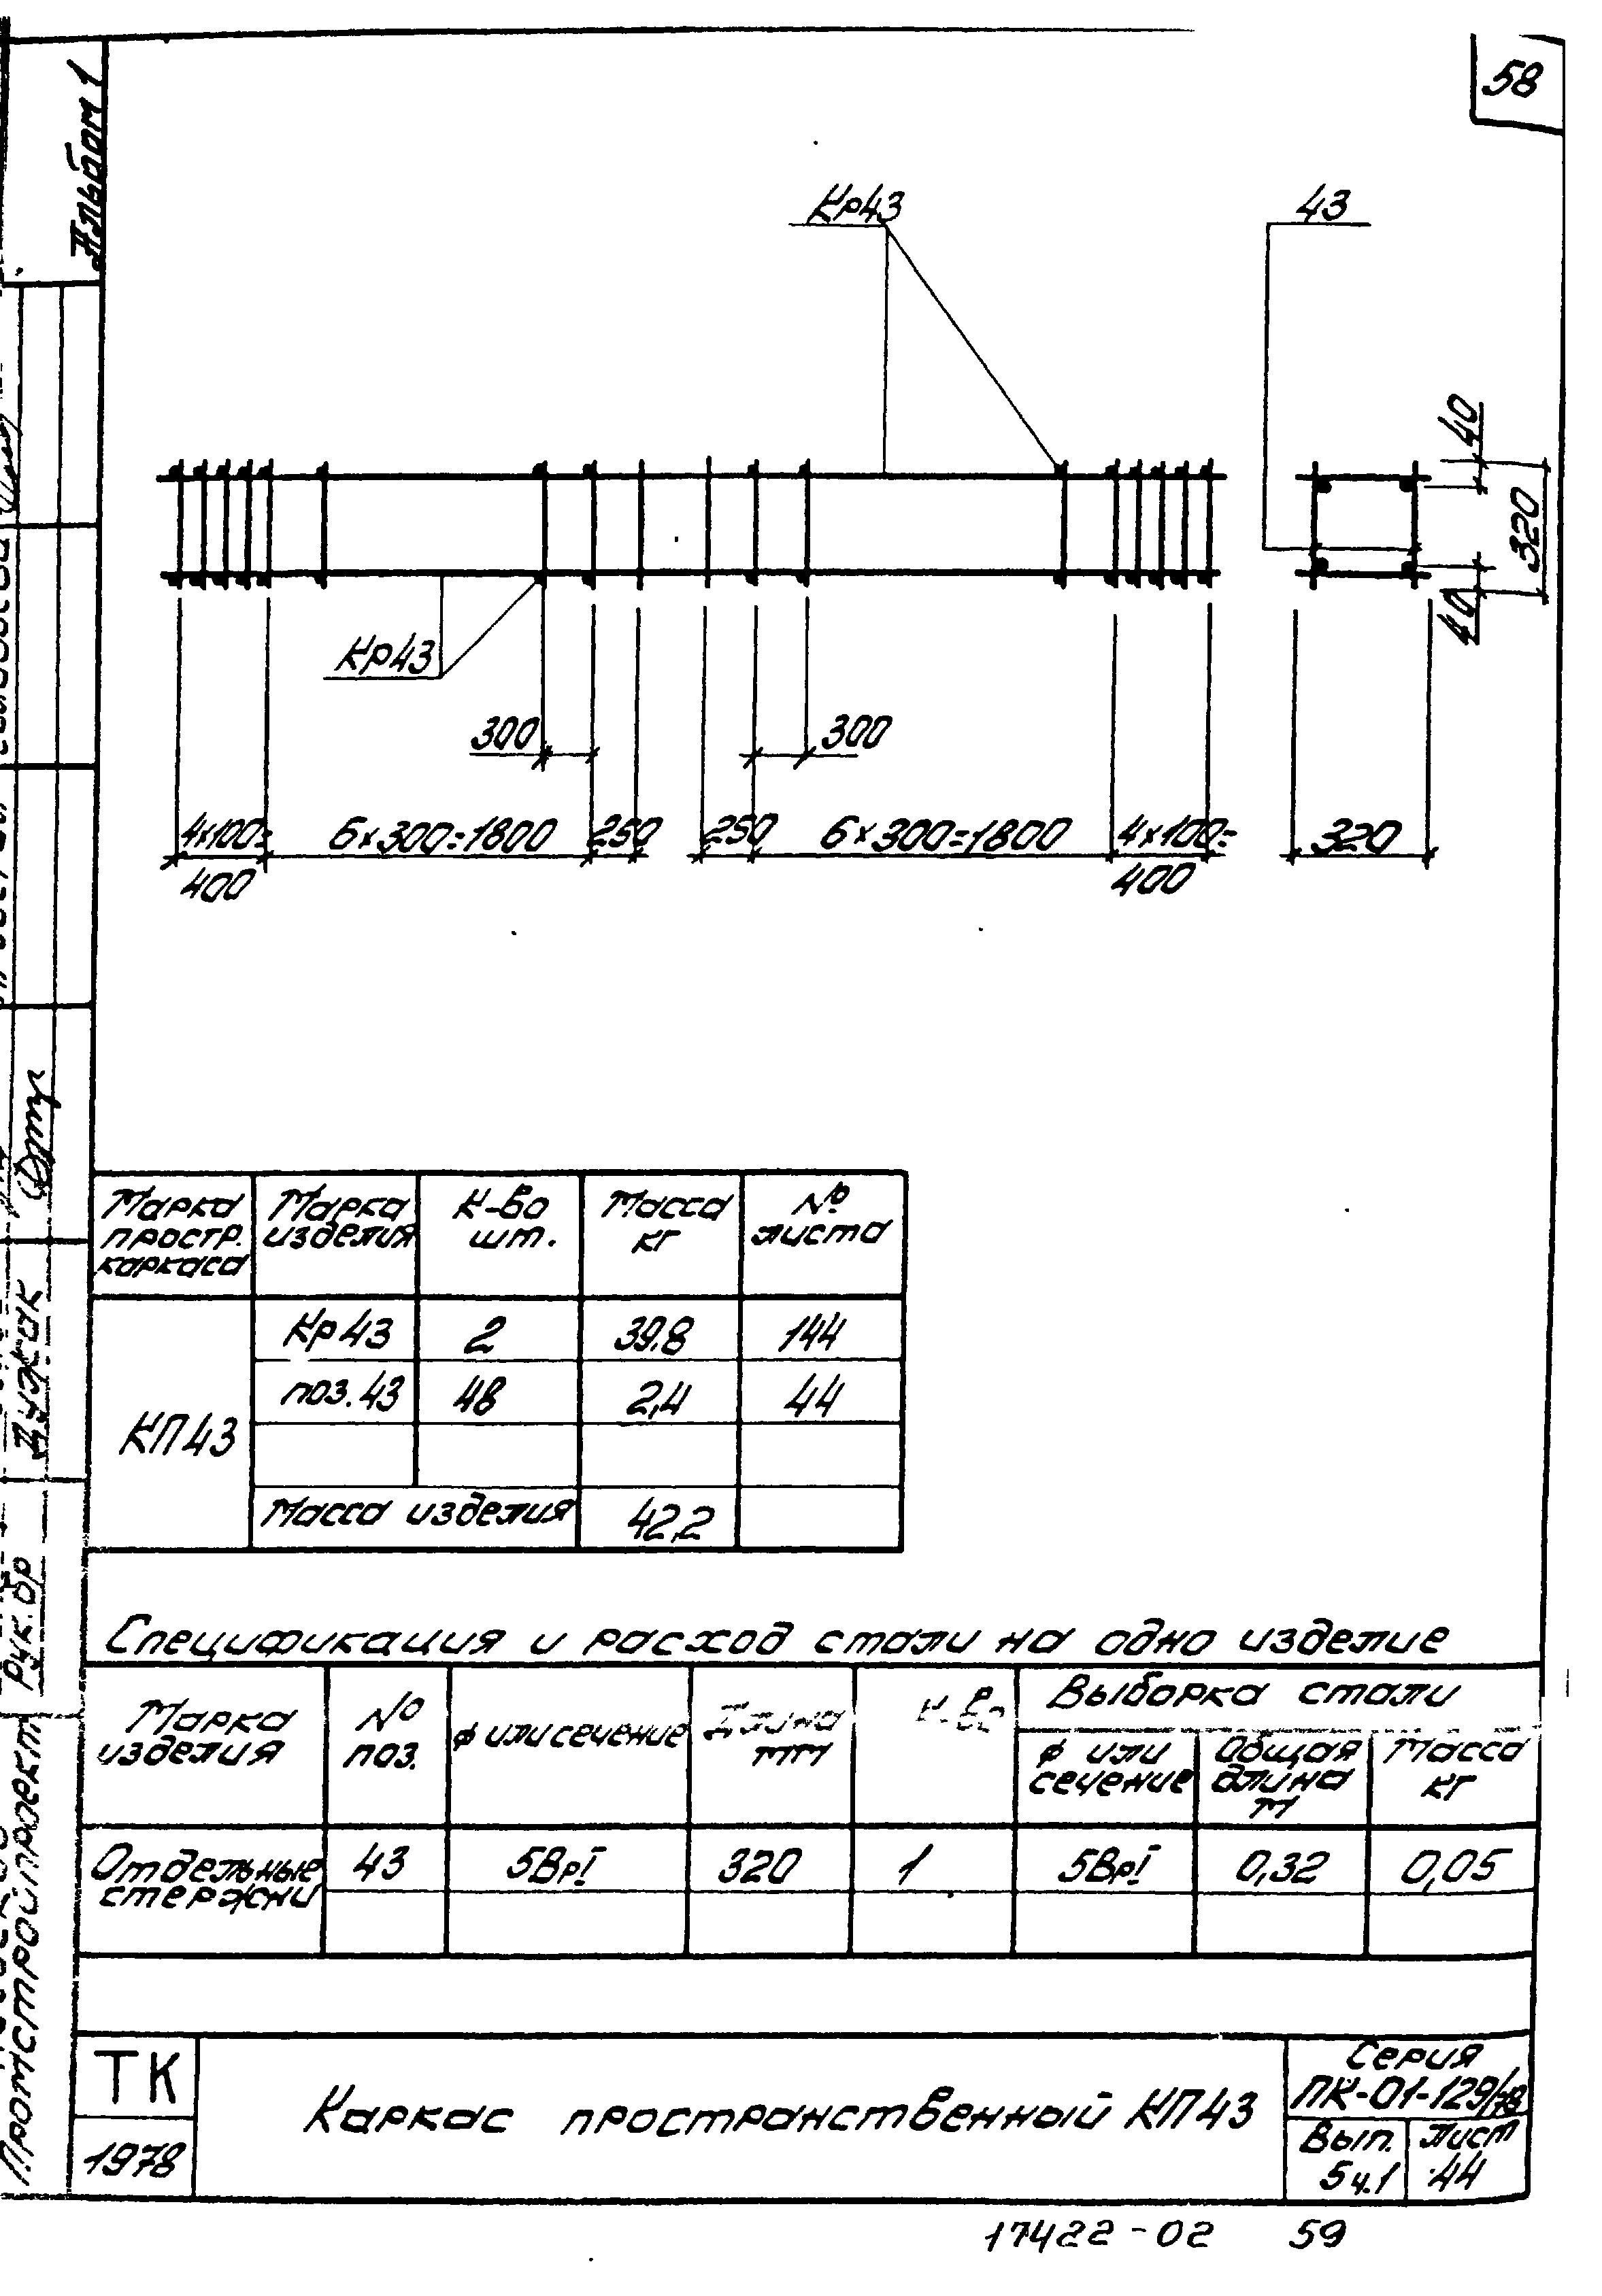 58
Альбом 1
Кр43
43
40
320
40
Кр43
300
300
4×100=
400
6×300=1800
250
250
6×300=1800
4×100=
400
320
Марка простр. каркаса
Марка изделия
К-во шт.
Масса кг
№ листа
КП43
Кр43 2 39.8 144
поз.43 48 2,4 44
Масса изделия 42,2
Спецификация и расход стали на одно изделие
Марка изделия
№ поз.
ф или сечение
Длина мм
К-во
Выборка стали
ф или сечение
Общая длина м
Масса кг
Отдельные стержни 43 5ВрI 320 1 5ВрI 0,32 0,05
ТК
1978
Каркас пространственный КП43
Серия
ПК-01-129/78
Вып. 5 ч.1
Лист 44
17422-02 59
Дужак
Рук.бр
Промстройпроект